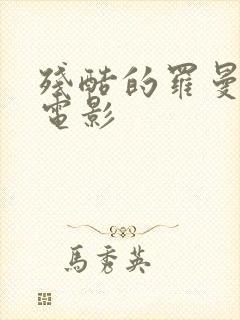 殘酷的羅曼
電影
馬秀英